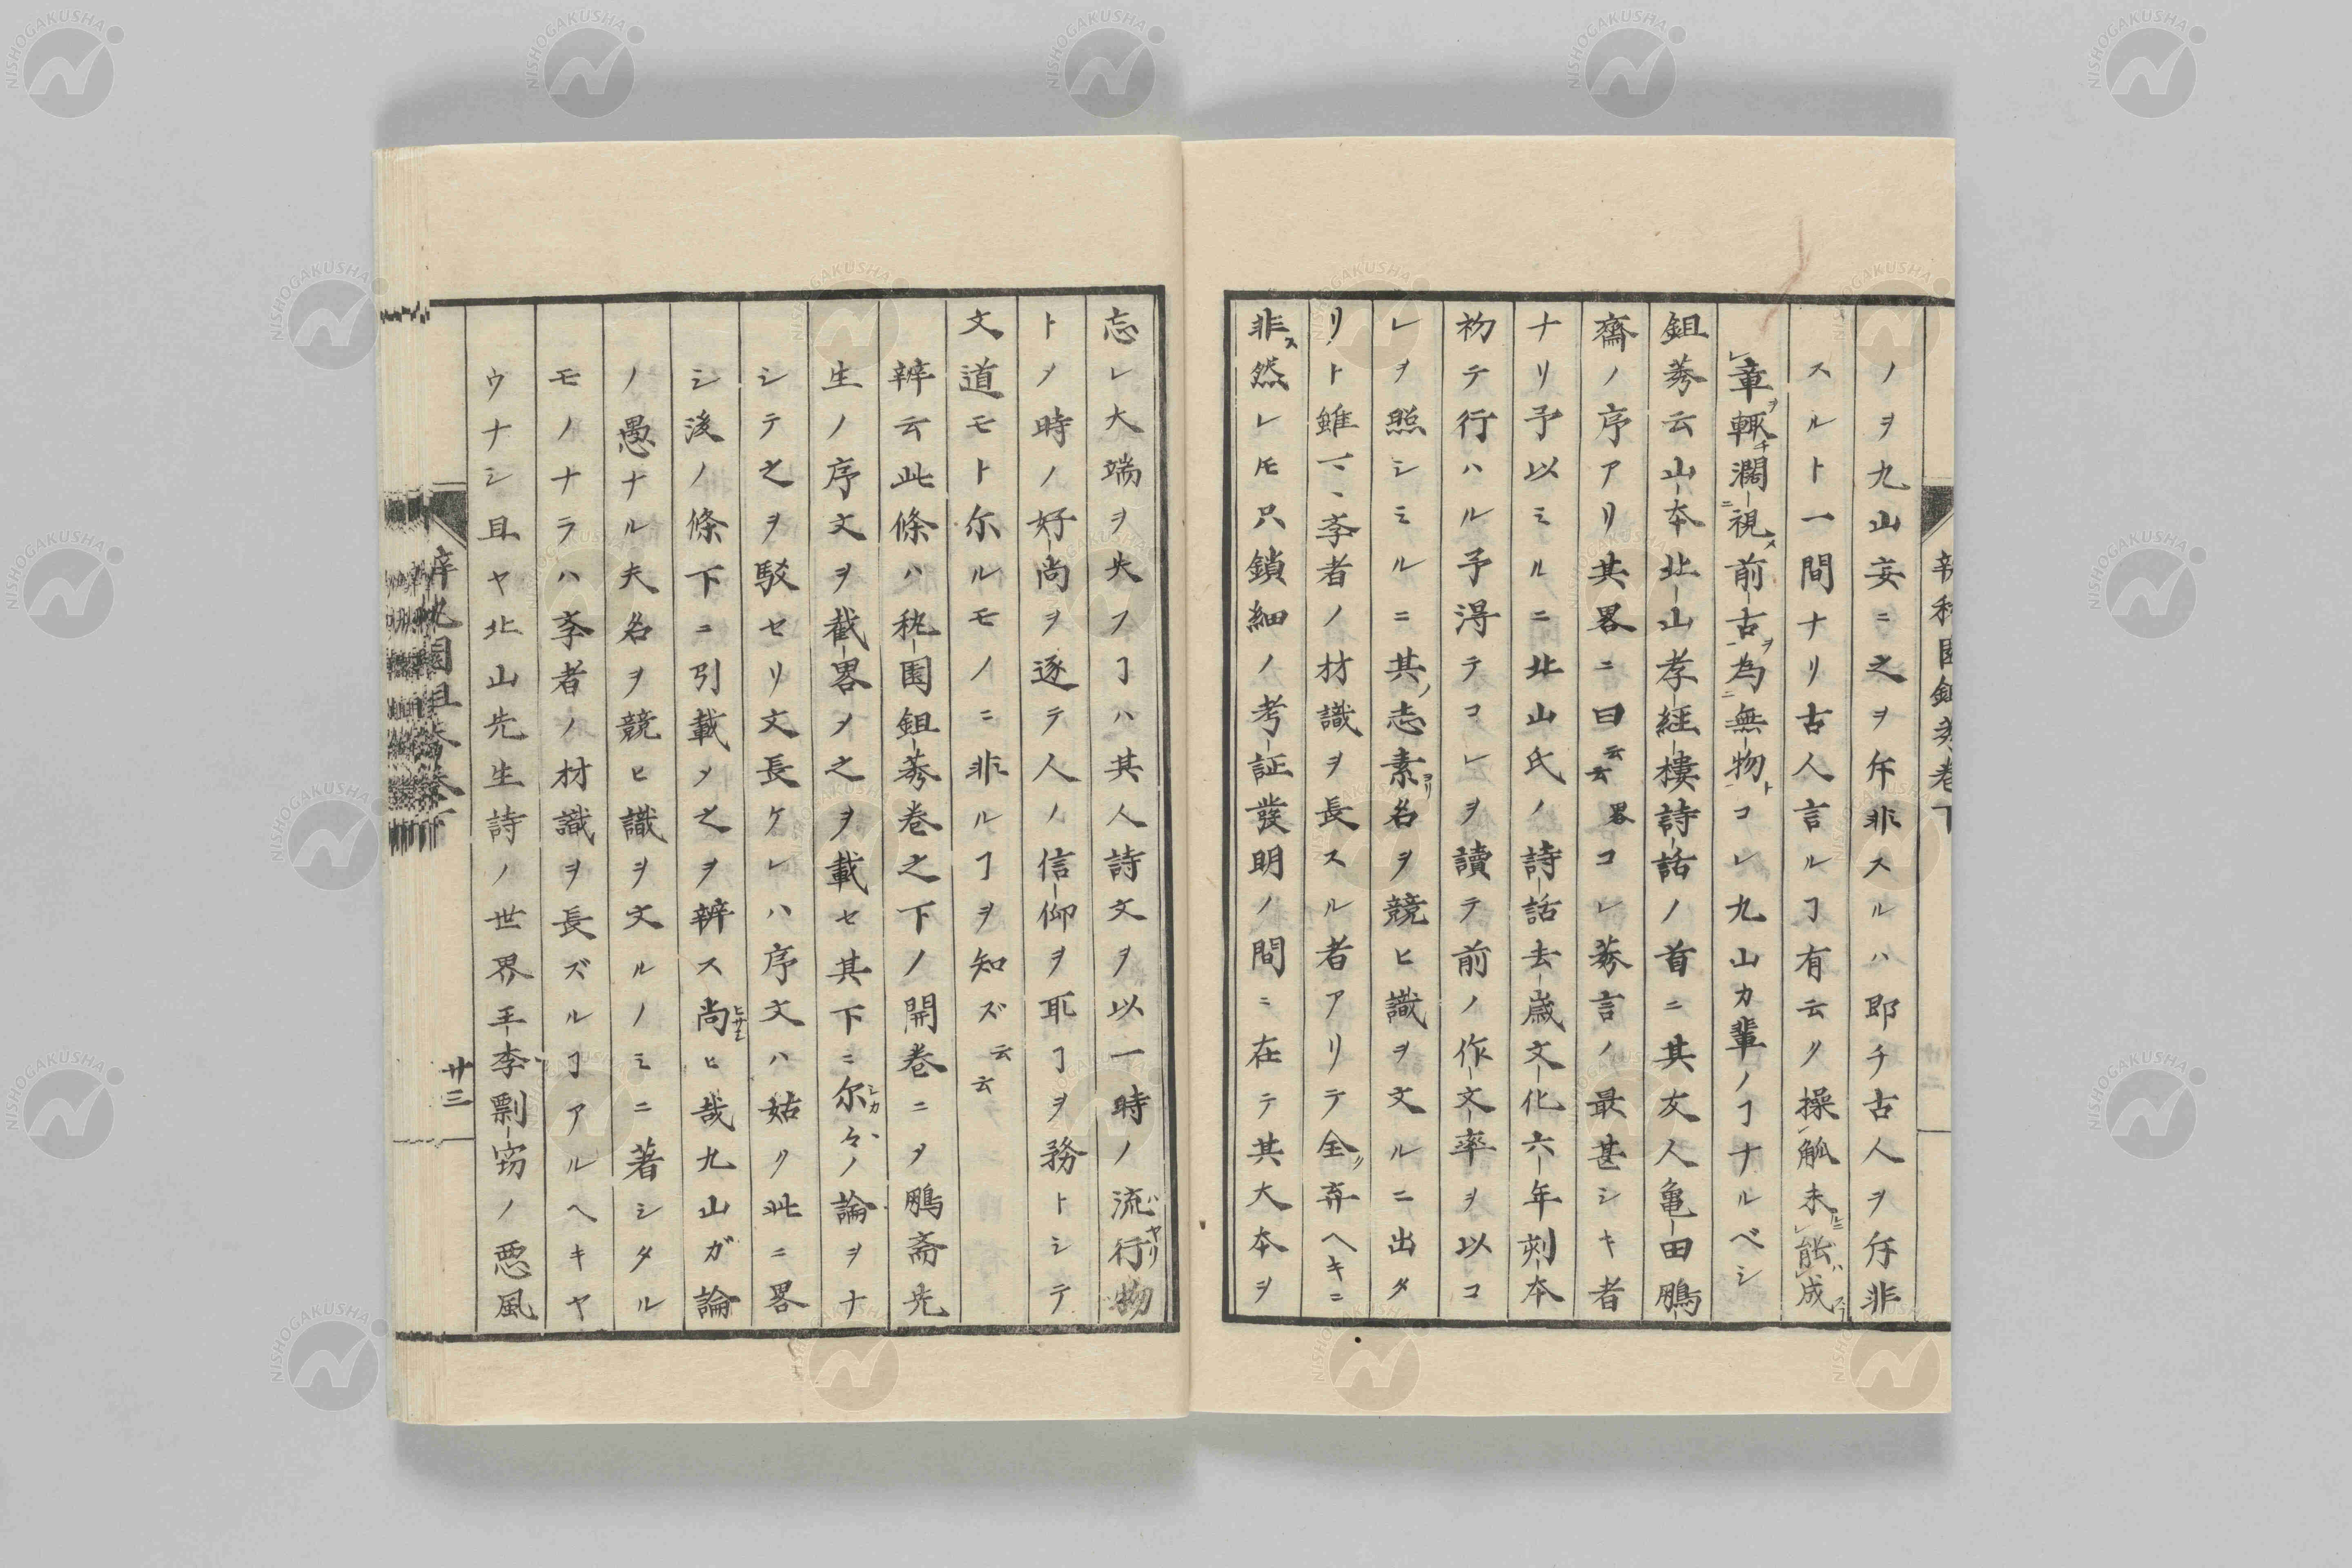 辨秇園鉏莠卷下
ノヲ九山妄ニ之ヲ斥非スルハ郎チ古人ヲ斥非
スルト一間ナリ古人言ルヿ有云ク操觚未ルニ能ハ成スヿ
章ヲ輙チ濶視ス前古ヲ為ニ無物トコレ九山カ輩ノヿナルベシ
鉏莠云山本北山孝經樓詩話ノ首ニ其友人亀田鵬
齋ノ序アリ其畧ニ曰云云畧コレ莠言ノ最甚シキ者
ナリ予以ミルニ北山氏ノ詩話去歳文化六年刻本
初テ行ハル予得テコレヲ讀テ前ノ作文率ヲ以コ
レヲ照シミルニ其ノ志素ヨリ名ヲ競ヒ識ヲ文ルニ出タ
リト雖𪜈、斈者ノ材識ヲ長スル者アリテ全ク弃ヘキニ
非ス然レ𪜈只鎖細ノ考証發明ノ間ニ在テ其大本ヲ
忘レ大端ヲ失フヿハ其人詩文ヲ以一時ノ流行ハヤリ物
トメ時ノ好尚ヲ逐テ人ノ信仰ヲ耴ヿヲ務トシテ
文道モト尓ルモノニ非ルヿヲ知ズ云云
辨云此條ハ秇園鉏莠卷之下ノ開卷ニタ鵬斎先
生ノ序文ヲ截畧メ之ヲ載セ其下ニ尓シカ々〻ノ論ヲナ
シテ之ヲ駁セリ文長ケレハ序文ハ姑ク此ニ畧
シ後ノ條下ニ引載メ之ヲ辨ス尚ヒ哉九山ガ論
ノ愚ナル夫名ヲ競ヒ識ヲ文ルノミニ著シタル
モノナラハ斈者ノ材識ヲ長ズルヿアルヘキヤ
ウナシ且ヤ北山先生詩ノ世界王李剽窃ノ悪風
辨秇園鉏莠卷下
廿三